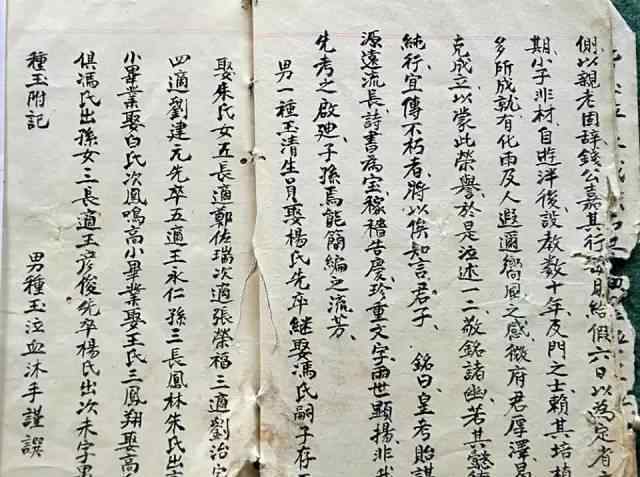 側以親老固辞錢公嘉其行每月給假六日以為定省
期小子非材自遊泮後設教数十年及門之士賴其培植
多所成就有化雨及人遐邇嚮風之感微府君厚澤曷
克成立以蒙此榮譽於是泣述一二敬銘諸幽若其懿德
純行宜傳不朽者將以俟知言君子 銘曰皇考貽謀
源遠流長詩書為宝稼穡告慶珍重文字兩世顯揚非我
先考之啟廸子孫焉能簡編之流芳
男一種玉清生員娶楊氏先卒継娶馮氏嗣子存
娶朱氏女五長適鄭佐瑞次適張榮福三適劉治
四適劉建元先卒五適王永仁孫三長鳳林朱氏出
小畢業娶白氏次鳳鳴高小畢業娶王氏三鳳翔娶高
俱馮氏出孫女三長適王彦俊先卒楊氏出次未字
種玉附記 男種玉泣血沐手謹誤